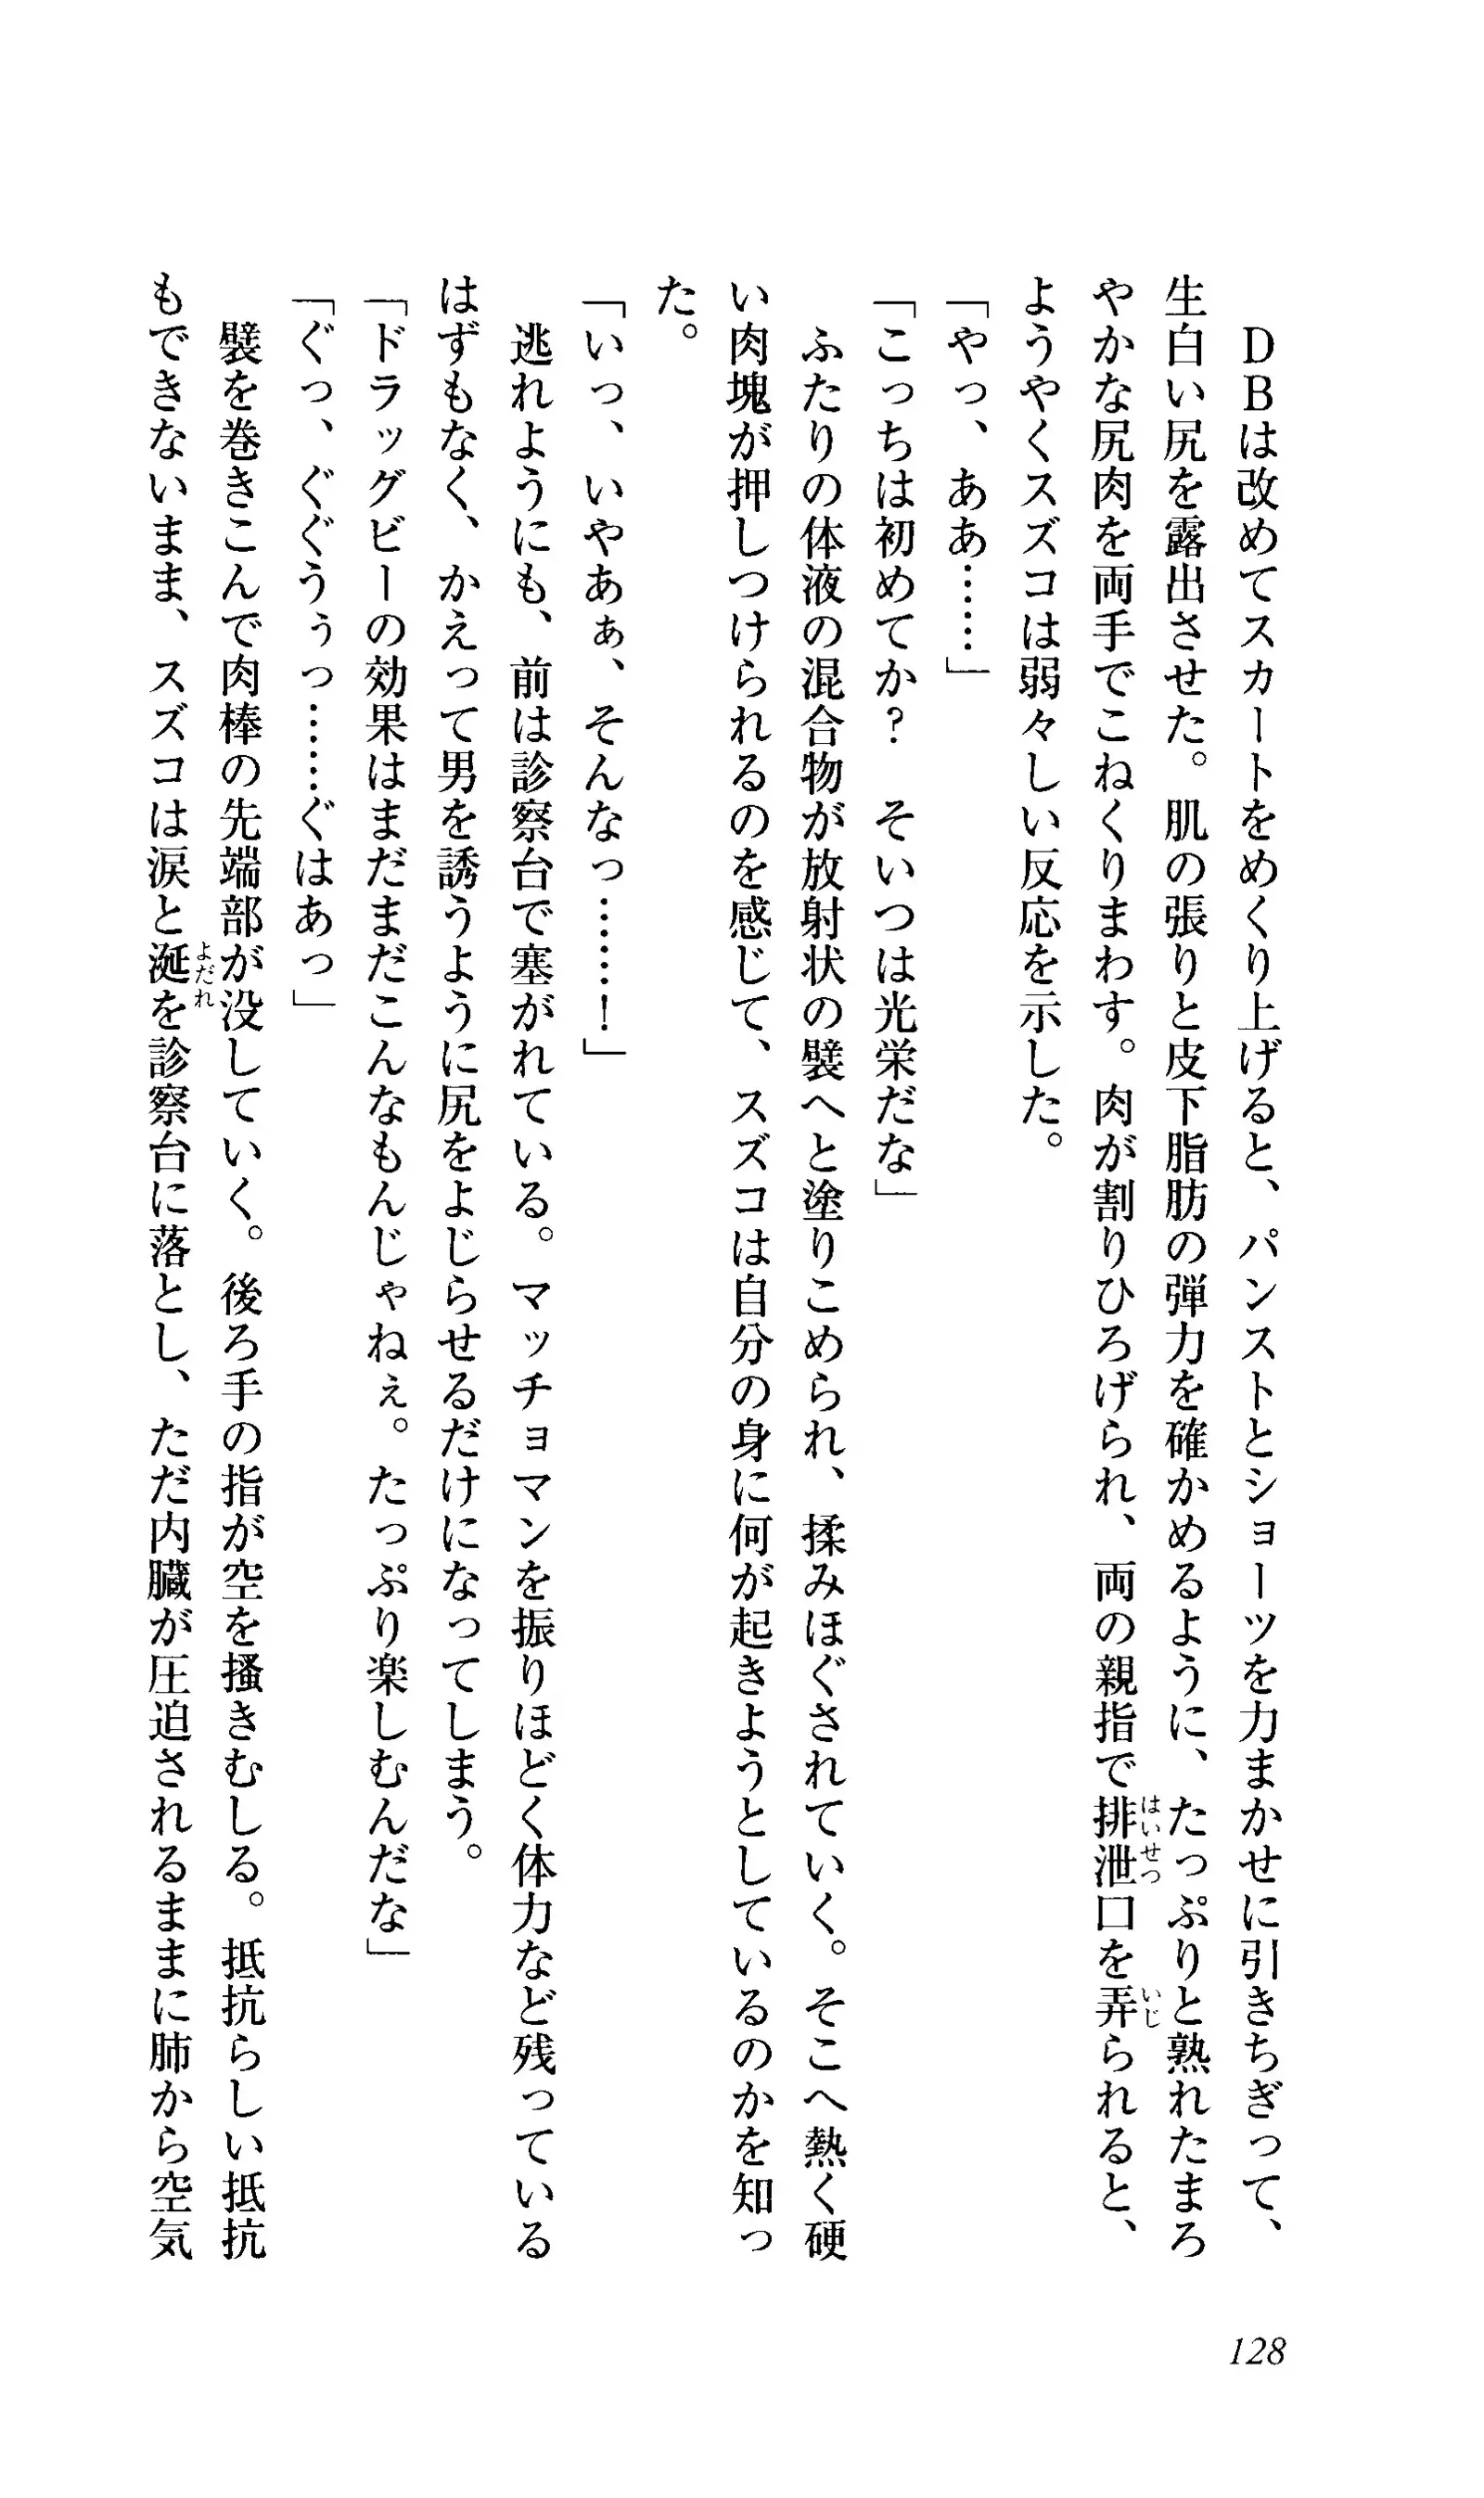 DBは改めてスカートをめくり上げると、パンストとショーツを力まかせに引きちぎって、
生白い尻を露出させた。肌の張りと皮下脂肪の弾力を確かめるように、たっぷりと熟れたまろ
やかな尻肉を両手でこねくりまわす。肉が割りひろげられ、両の親指で排泄口を弄られると、
ようやくスズコは弱々しい反応を示した。
「やっ、ああ……」
「こっちは初めてか？　そいつは光栄だな」
ふたりの体液の混合物が放射状の襞へと塗りこめられ、揉みほぐされていく。そこへ熱く硬
い肉塊が押しつけられるのを感じて、スズコは自分の身に何が起きようとしているのかを知っ
た。
「いっ、いやあぁ、そんなっ……！」
逃れようにも、前は診察台で塞がれている。マッチョマンを振りほどく体力など残っている
はずもなく、かえって男を誘うように尻をよじらせるだけになってしまう。
「ドラッグビーの効果はまだまだこんなもんじゃねぇ。たっぷり楽しむんだな」
「ぐっ、ぐぐうぅっ……ぐはあっ」
襞を巻きこんで肉棒の先端部が没していく。後ろ手の指が空を掻きむしる。抵抗らしい抵抗
もできないまま、スズコは涙と涎を診察台に落とし、ただ内臓が圧迫されるままに肺から空気
はいせつ
いじ
よだれ
128